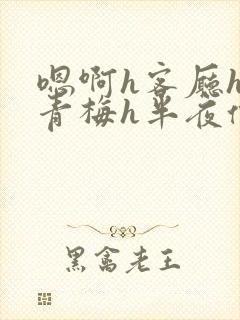 嗯啊h客厅h
青梅h半夜
黑禽老王